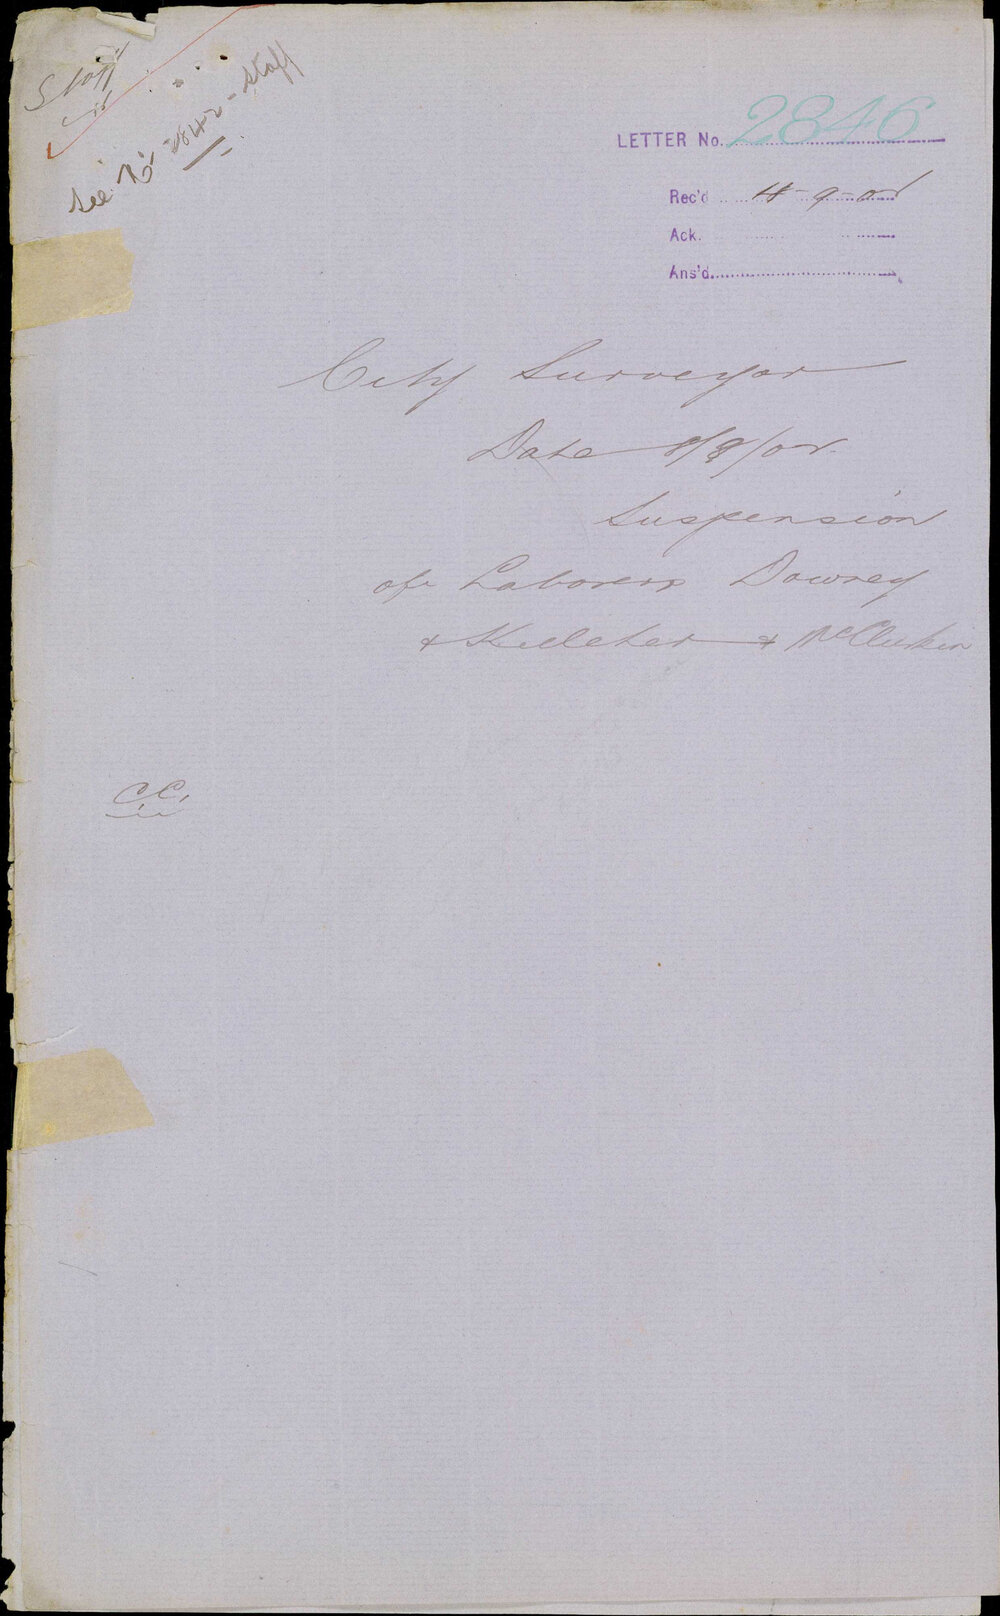 Staff
See No 2842 - Staff
LETTER No. 2846
Rec'd 4-9-02
Ack.
Ans'd.
City Surveyor
Date 8/02
Suspension
of Laborers Downey
& Kelleher & McClusken
C.C.